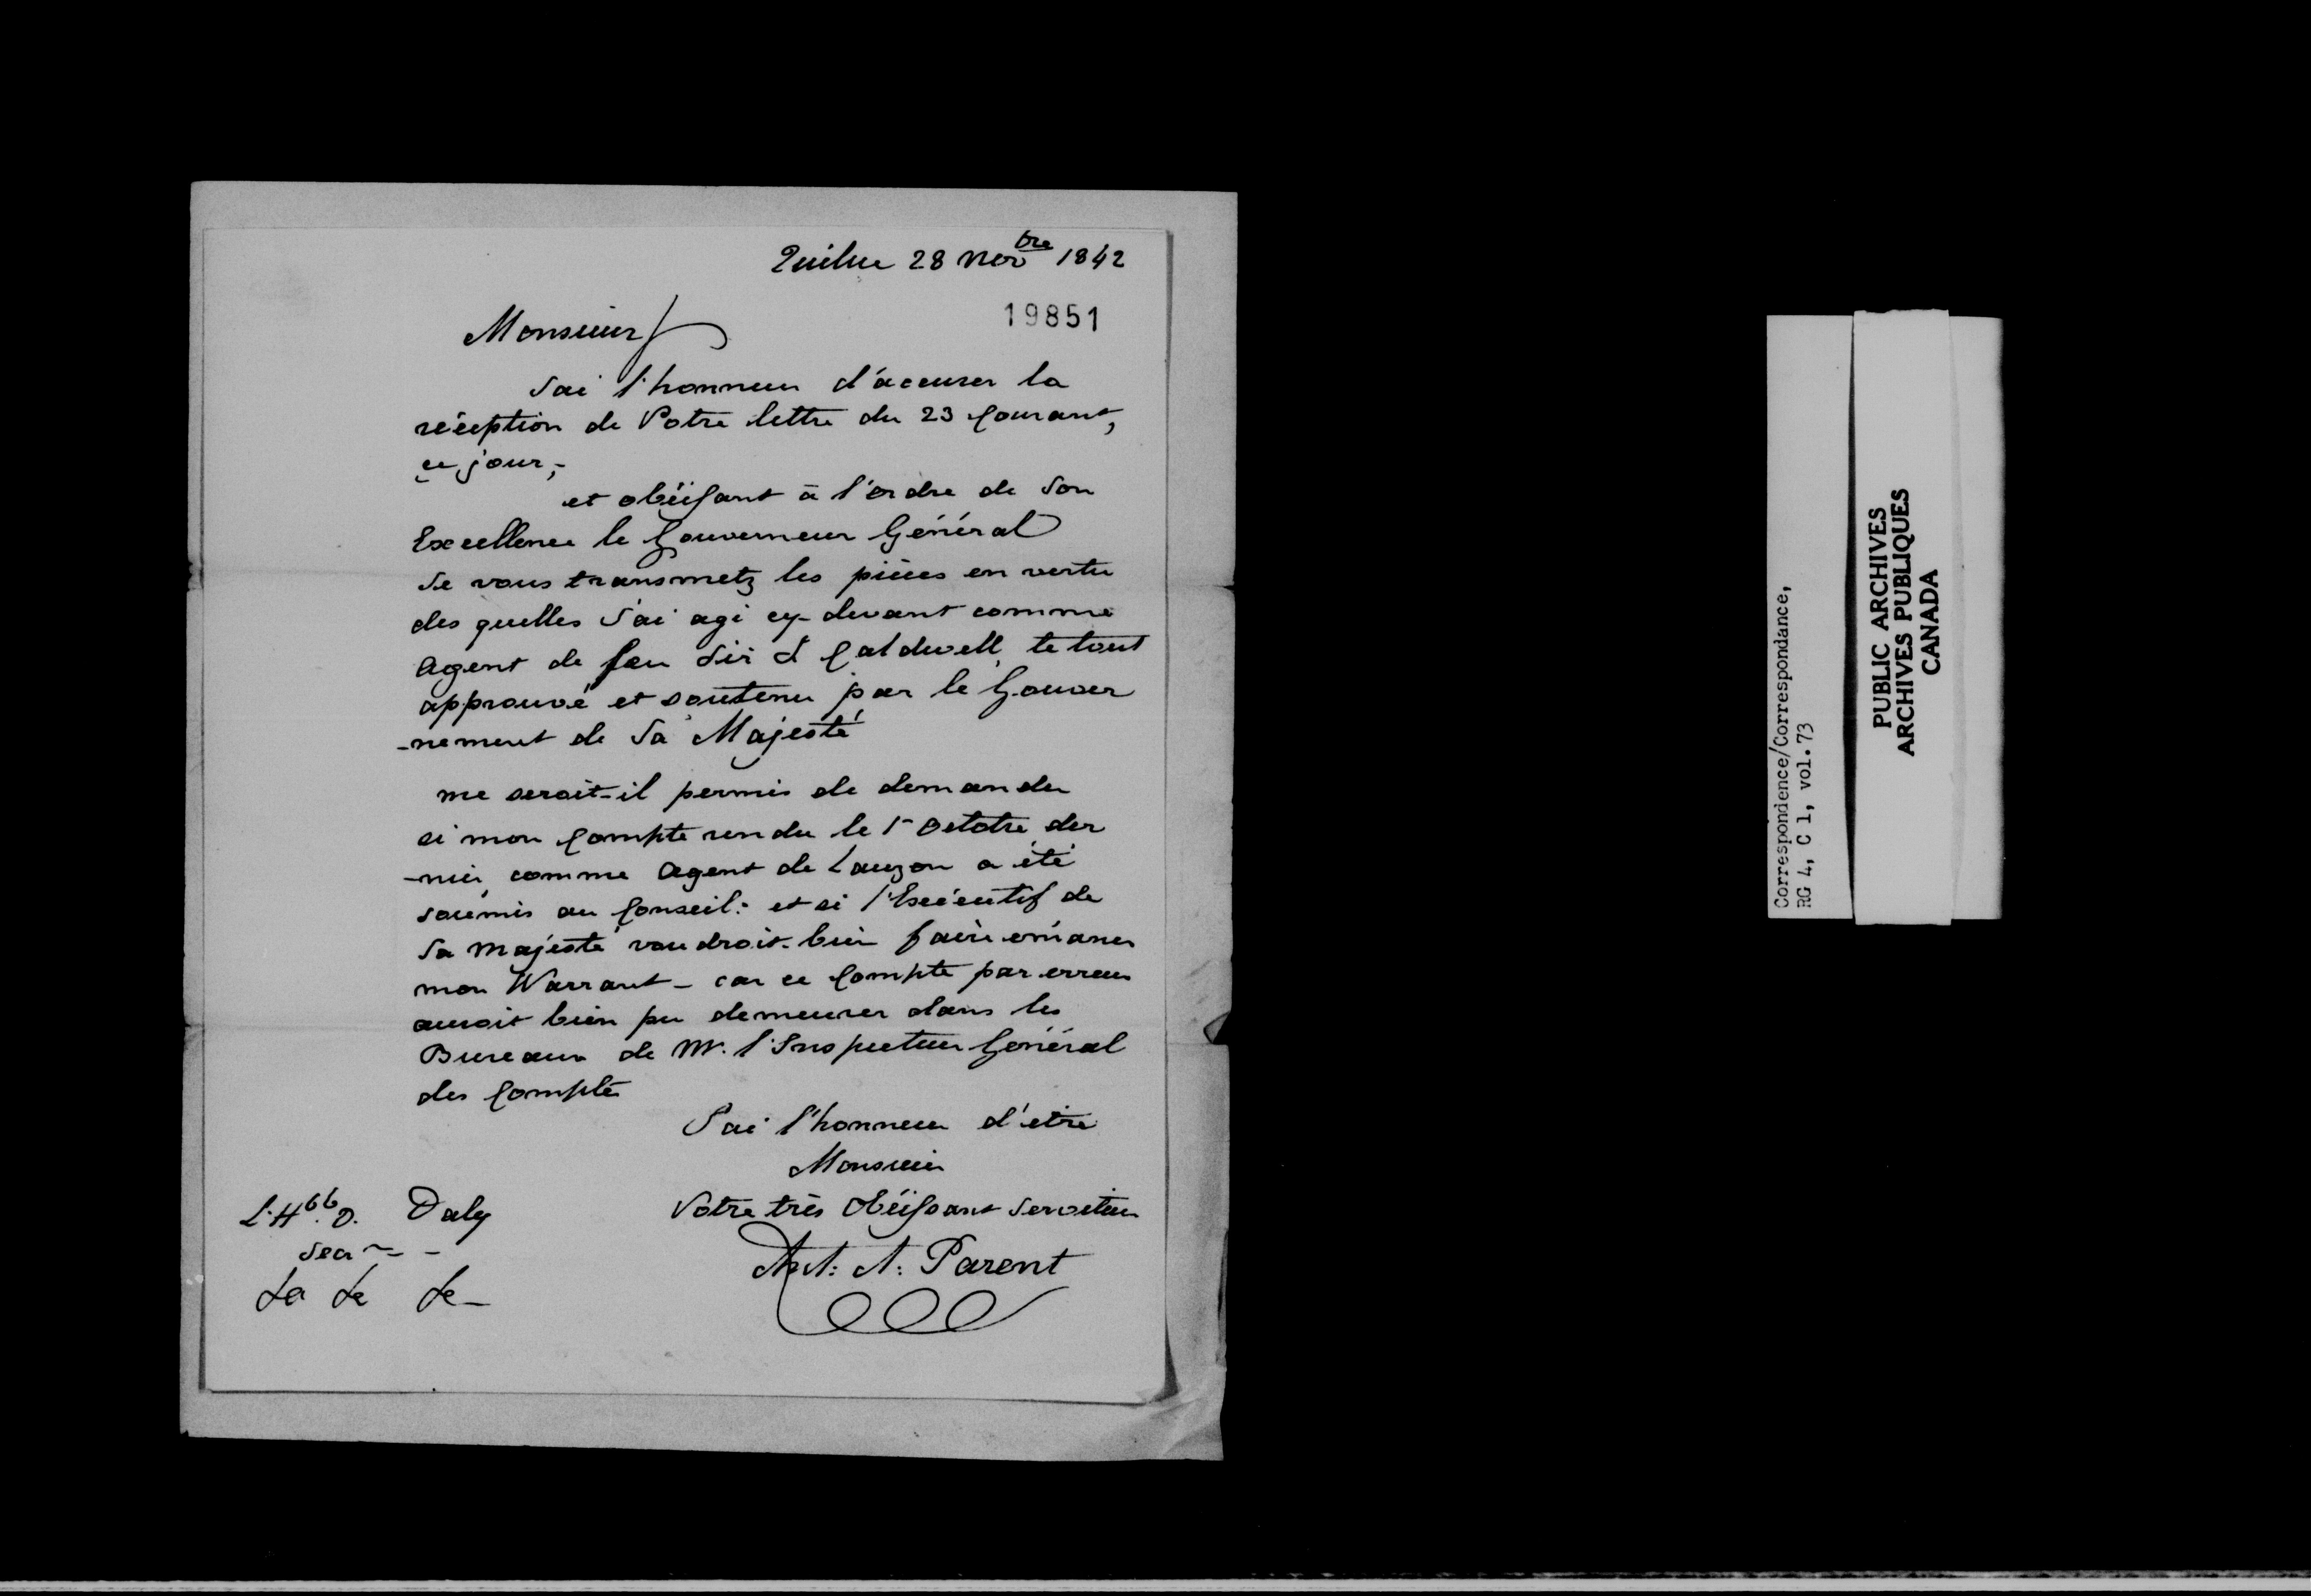 Québec 28 Nov^bre 1842
19851
Monsieur
J'ai l'honneur d'accuser la
réception de Votre lettre du 23 Courant,
ce jour,-
et obéissant à l'ordre de Son
Excellence le Gouverneur Général
Je vous transmetz les pièces en vertu
des quelles J'ai agi cy-devant comme
Agent de feu Sir J Caldwell le tout
approuvé et soutenu par le Gouver
-nement de Sa Majesté
me seroit-il permis de demander
si mon Compte rendu le 1r Octobre der
-nier, comme Agent de Lauzon a été
soumis au Conseil: et si l'Exécutif de
Sa Majesté voudroit-bien faire émaner
mon Warrant - car ce Compte par erreur
auroit bien pu demeurer dans les
Bureaux de Mr. l'Inspecteur Général
des Comptes
J'ai l'honneur d'être
Monsieur
Votre très Obéissant Serviteur
Ant: A: Parent
L'H^ble D. Daly
Secr - -
&c &c &c -
Correspondence/Correspondance,
RG 4, C 1, vol.73
PUBLIC ARCHIVES
ARCHIVES PUBLIQUES
CANADA